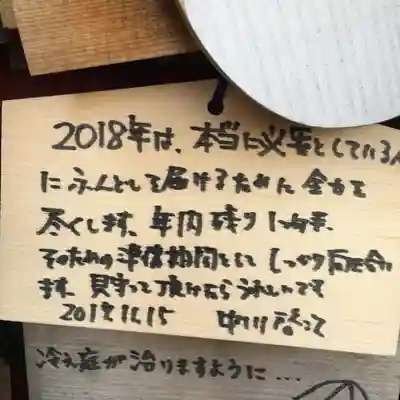 2018年は、本当に必要としている人
にふんとしを届けるために全力を
尽くします。年内残り1ヶ月半、
そのための準備期間として しっかり向き合い
ます。見守って頂けたらうれしいです
2017.11.15 中川
冷え症が治りますように…